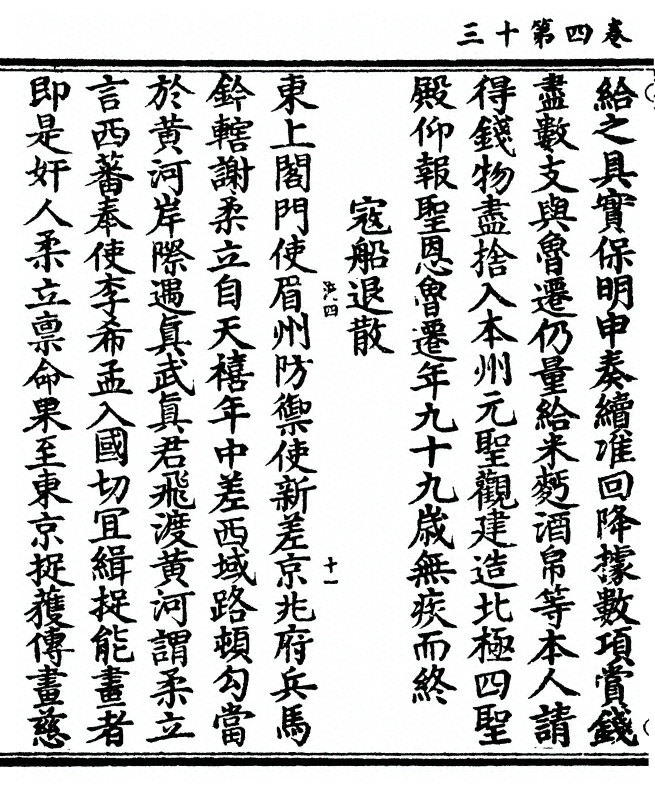 卷四第十三
給之具實保明申奏續准回降據數項賞錢
盡數支與魯遷仍量給米麪酒帛等本人請
得錢物盡捨入本州元聖觀建造北極四聖
殿仰報聖恩魯遷年九十九歲無疾而終
寇船退散
流四
十一
東上閤門使眉州防禦使新差京兆府兵馬
鈐轄謝柔立自天禧年中差西域路頓勾當
於黃河岸際遇眞武眞君飛渡黃河謂柔立
言西蕃奉使李希孟入國切冝緝捉能畫者
即是奸人柔立稟命果至東京捉獲傳畫慈